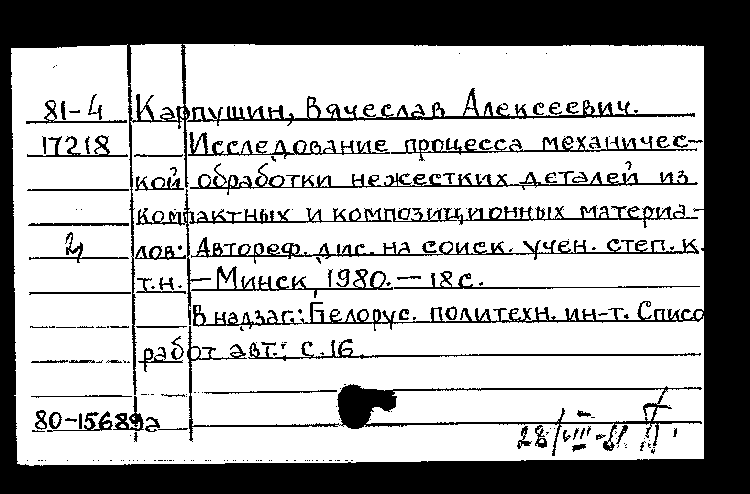 81-4 Карпушин, Вячеслав Алексеевич.
17218 Исследование процесса механичес-
кой обработки нежестких деталей из
компактных и композиционных материа-
2 лов: Автореф. дис. на соиск. учен. степ. к.
т.н. — Минск, 1980. — 18 с.
В надзаг.: Белорус. политехн. ин-т. Списо
работ авт.: с. 16.
80-15689а
28/VIII-81